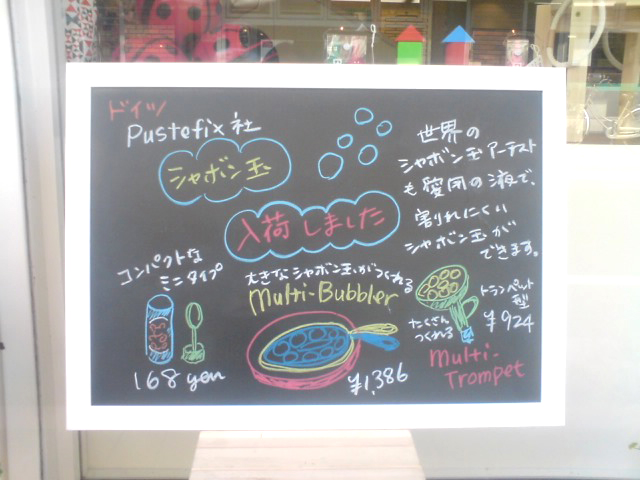 ドイツ
Pustefix社
シャボン玉
入荷しました
世界の
シャボン玉アーテスト
も愛用の液で、
割れにくい
シャボン玉が
できます。
コンパクトな
ミニタイプ
168yen
大きなシャボン玉がつくれる
Multi-Bubbler
¥1,386
トランペット
型
¥924
たくさん
つくれる
Multi-
Trompet